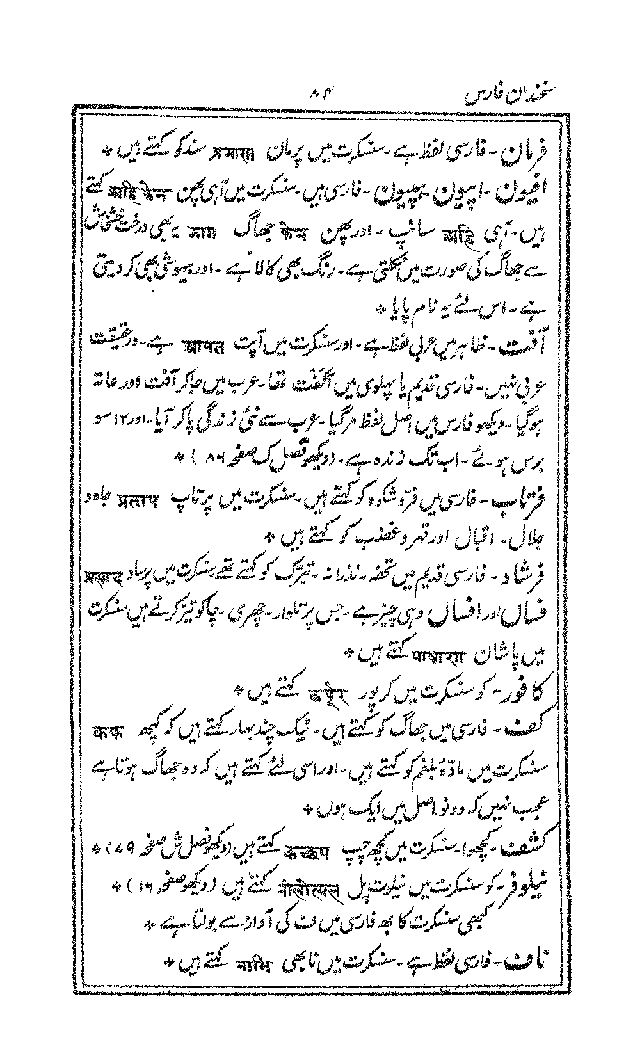 سخندان فارس ۸۴
فرمان - فارسی لفظ ہے - سنسکرت میں پرمان प्रमाण سند کو کہتے ہیں *
افیون - اپیون - ہپیون - فارسی ہیں - سنسکرت میں آہی پھین अहिफेन کہتے
ہیں - آہی अहि سانپ - اور پھین फेन جھاگ झाग یہ بھی درخت خشخاش
سے جھاگ کی صورت میں نکلتی ہے - رنگ بھی کالا ہے - اور بیہوشی بھی کر دیتی
ہے - اس لئے یہ نام پایا *
آفت - ظاہر میں عربی لفظ ہے - اور سنسکرت میں آپت आपत ہے - درحقیقت
عربی نہیں - فارسی قدیم یا پہلوی میں آگفت تھا - عرب میں جا کر آفت اور عاہۃ
ہو گیا - دیکھو فارس میں اصل لفظ مر گیا - عرب سے نئی زندگی پا کر آیا - اور ۱۲ سو
برس ہوئے - اب تک زندہ ہے - (دیکھو فصل ک صفحہ ۸۶) *
فرتاب - فارسی میں فرّ و شکوہ کو کہتے ہیں - سنسکرت میں پرتاپ प्रताप جاہ و
جلال - اقبال اور قہر و غضب کو کہتے ہیں *
فرشاد - فارسی قدیم میں تحفہ - نذرانہ - تبرّک کو کہتے تھے سنسکرت میں پرساد प्रसाद
فساں اور افساں وہی چیز ہے - جس پر تلوار - چھری - چاکو تیز کرتے ہیں سنسکرت
میں پاشان पाषाण کہتے ہیں *
کافور - کو سنسکرت میں کرپور कर्पूर کہتے ہیں *
کف - فارسی میں جھاگ کو کہتے ہیں - ٹیک چند بہار کہتے ہیں کہ کپھ कफ
سنسکرت میں مادّۂ بلغم کو کہتے ہیں - اور اسی لئے کہتے ہیں کہ وہ جھاگ ہوتا ہے
عجب نہیں کہ دونو اصل میں ایک ہوں *
کشف - کچھوا - سنسکرت میں کچھ چپ कच्छप کہتے ہیں (دیکھو فصل ش صفحہ ۷۹) *
نیلوفر - کو سنسکرت میں نیلوتپل नीलोत्पल کہتے ہیں (دیکھو صفحہ ۱۶) *
کبھی سنسکرت کا بھ فارسی میں ف کی آواز سے بولتا ہے *
ناف - فارسی لفظ ہے - سنسکرت میں نابھی नाभि کہتے ہیں *